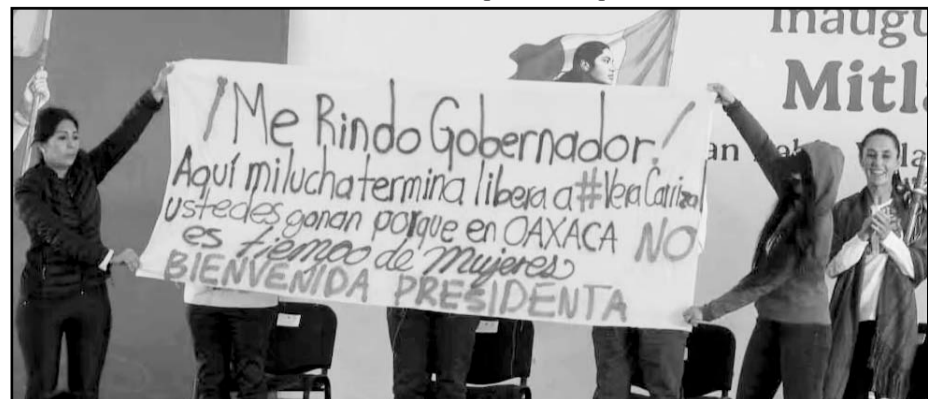 Inaugu
Mitl
an
¡Me Rindo Gobernador!
Aquí mi lucha termina libera a #Vera Carrizal
ustedes ganan porque en OAXACA NO
es tiempo de Mujeres
BIENVENIDA PRESIDENTA